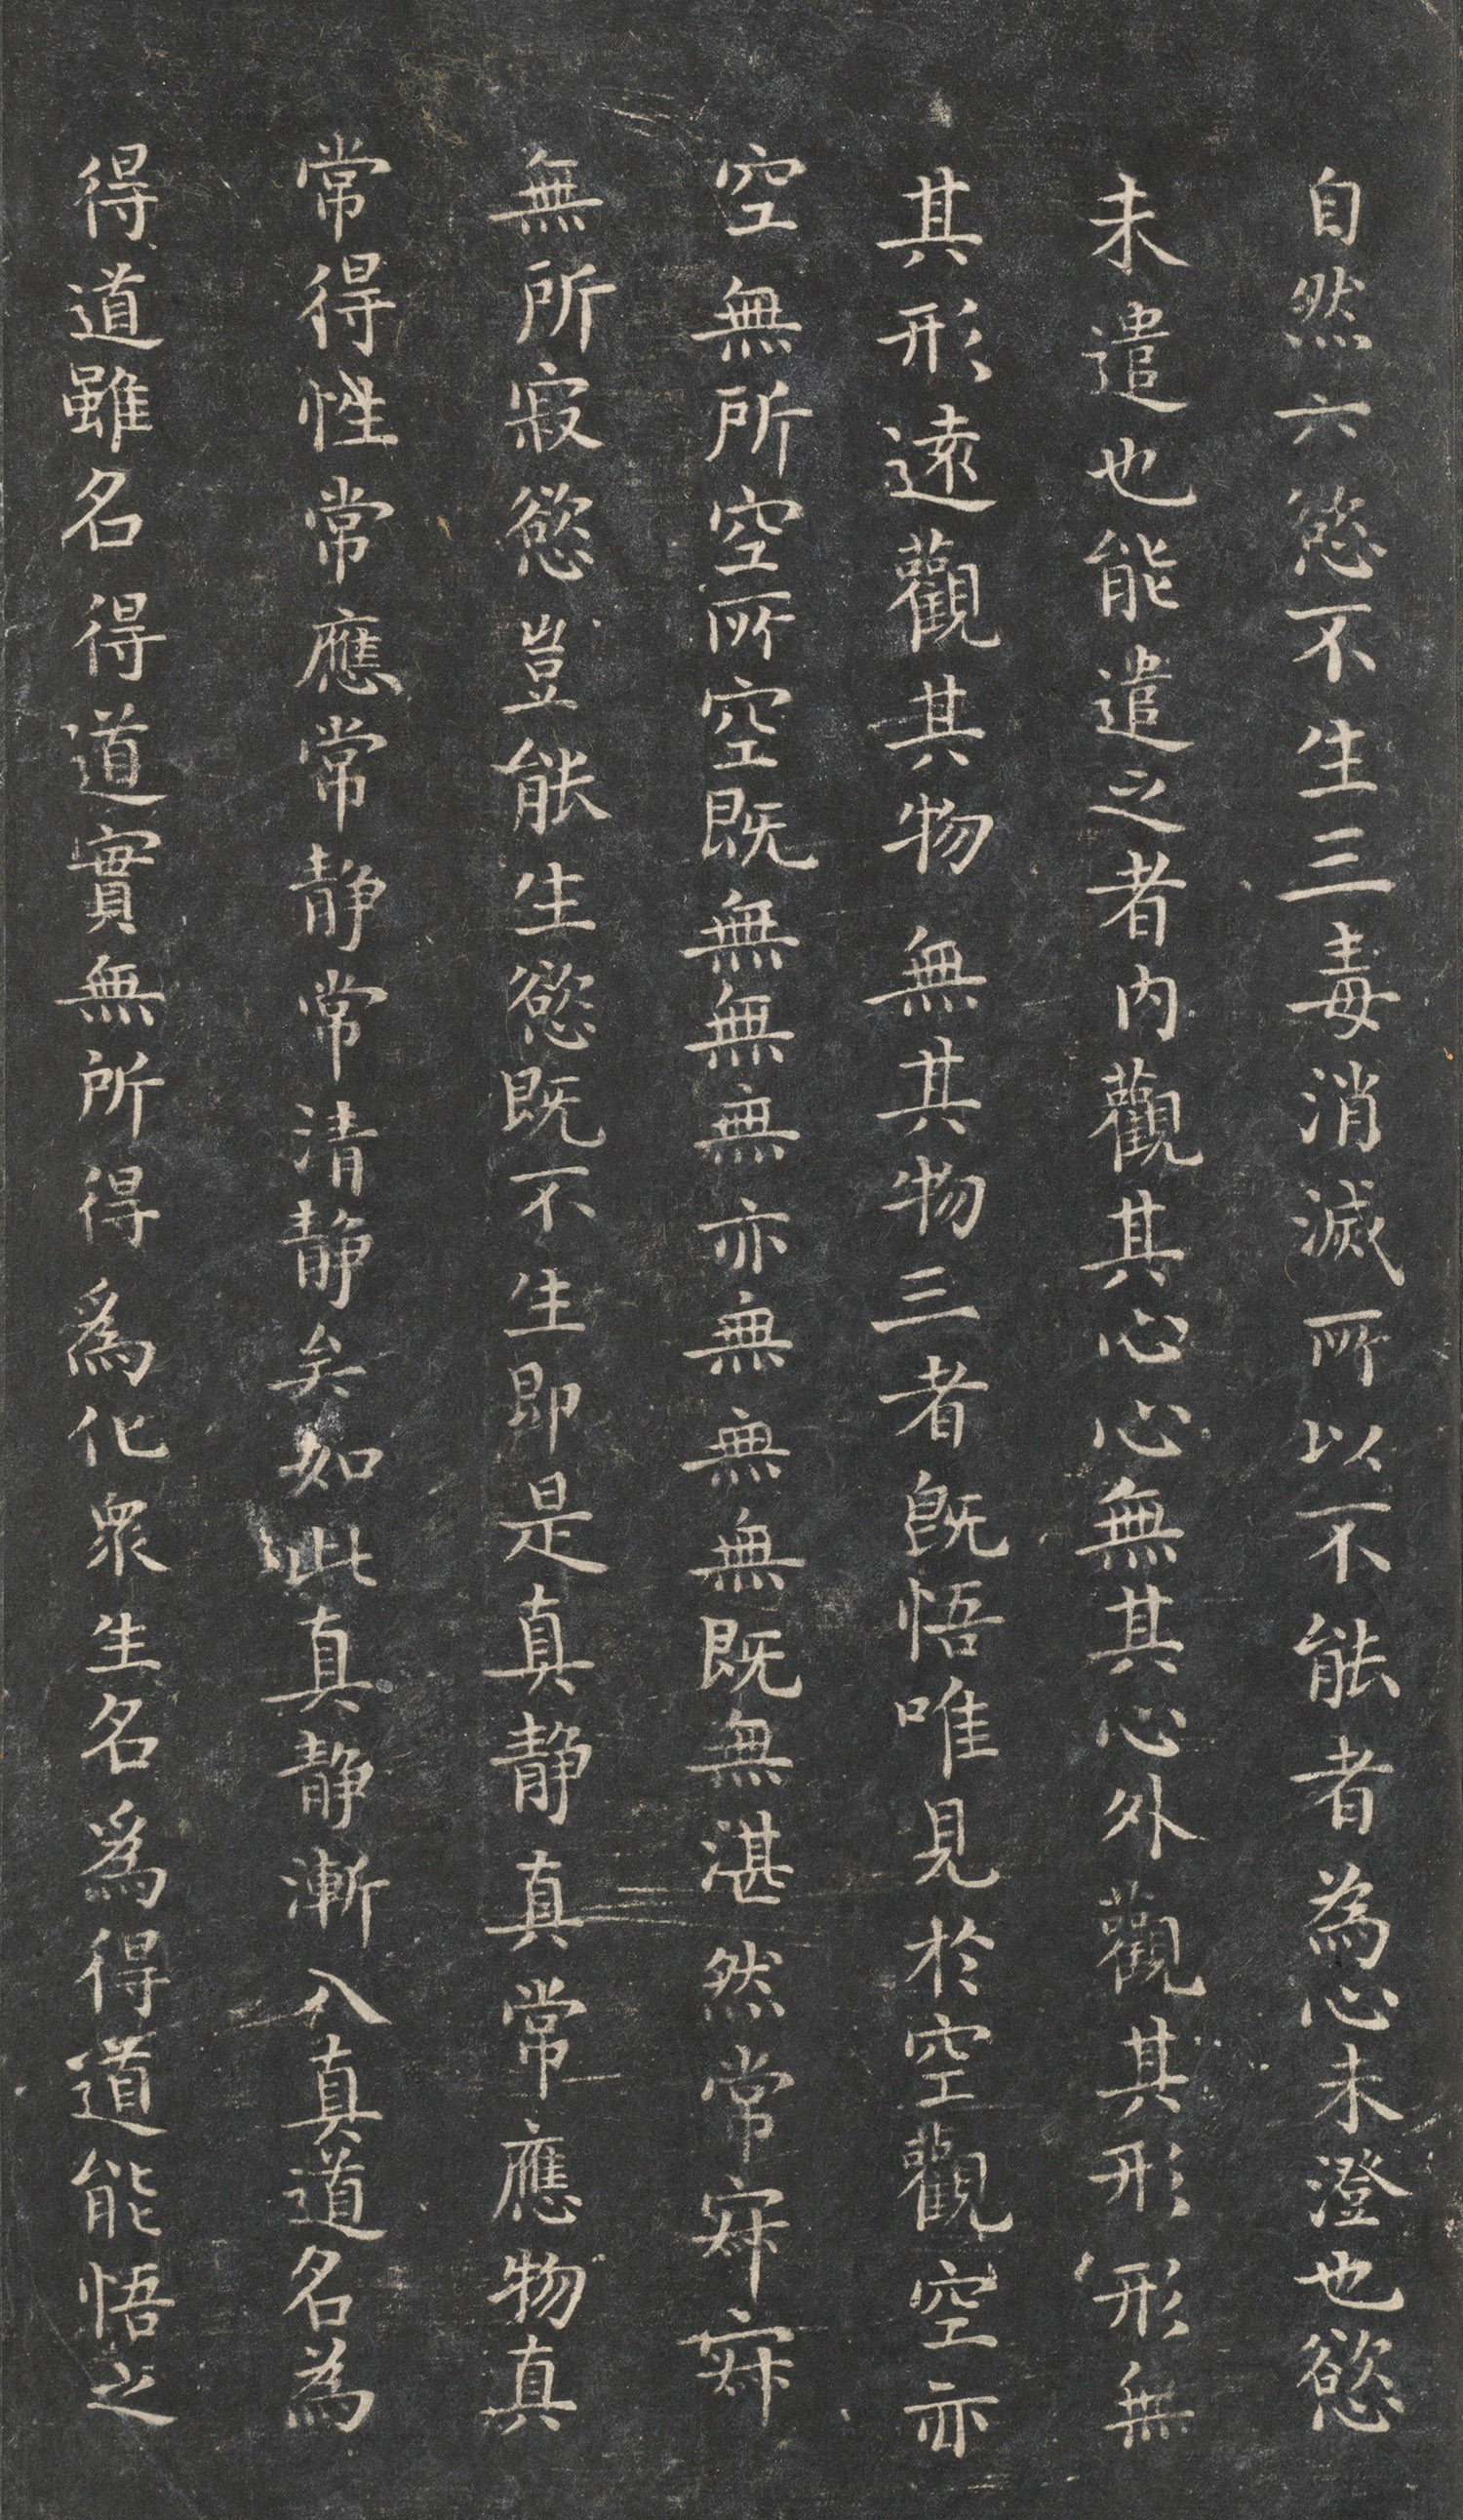 自然六慾不生三毒消滅所以不能者為心未澄也慾
未遣也能遣之者內觀其心心無其心外觀其形形無
其形遠觀其物無其物三者既悟唯見於空觀空亦
空無所空所空既無無無亦無無無既無湛然常寂寂
無所寂慾豈能生慾既不生即是真静真常應物真
常得性常應常静常清静矣如此真静漸入真道名為
得道雖名得道實無所得為化衆生名為得道能悟之